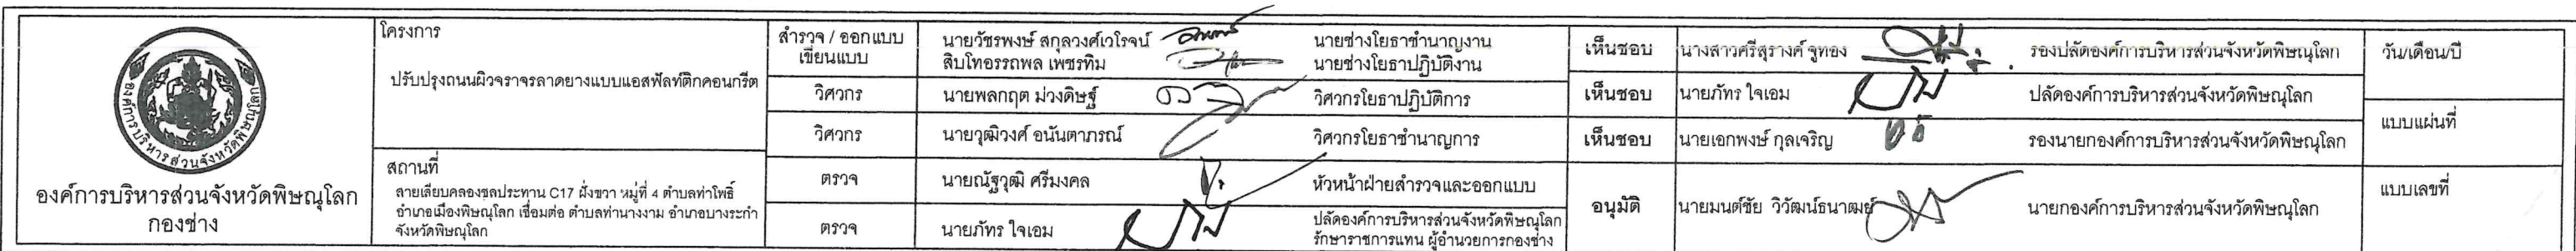 องค์การบริหารส่วนจังหวัดพิษณุโลก
องค์การบริหารส่วนจังหวัดพิษณุโลก
กองช่าง
โครงการ
ปรับปรุงถนนผิวจราจรลาดยางแบบแอสฟัลท์ติกคอนกรีต
สถานที่
สายเลียบคลองชลประทาน C17 ฝั่งขวา หมู่ที่ 4 ตำบลท่าโพธิ์
อำเภอเมืองพิษณุโลก เชื่อมต่อ ตำบลท่านางงาม อำเภอบางระกำ
จังหวัดพิษณุโลก
สำรวจ / ออกแบบ
เขียนแบบ
นายวัชรพงษ์ สกุลวงศ์เวโรจน์ นายช่างโยธาชำนาญงาน
สิบโทอรรถพล เพชรทิม นายช่างโยธาปฏิบัติงาน
วิศวกร นายพลกฤต ม่วงดิษฐ์ วิศวกรโยธาปฏิบัติการ
วิศวกร นายวุฒิวงศ์ อนันตาภรณ์ วิศวกรโยธาชำนาญการ
ตรวจ นายณัฐวุฒิ ศรีมงคล หัวหน้าฝ่ายสำรวจและออกแบบ
ตรวจ นายภัทร ใจเอม ปลัดองค์การบริหารส่วนจังหวัดพิษณุโลก
รักษาราชการแทน ผู้อำนวยการกองช่าง
เห็นชอบ นางสาวศรีสุรางค์ จูทอง รองปลัดองค์การบริหารส่วนจังหวัดพิษณุโลก
เห็นชอบ นายภัทร ใจเอม ปลัดองค์การบริหารส่วนจังหวัดพิษณุโลก
เห็นชอบ นายเอกพงษ์ กุลเจริญ รองนายกองค์การบริหารส่วนจังหวัดพิษณุโลก
อนุมัติ นายมนต์ชัย วิวัฒน์ธนาฒย์ นายกองค์การบริหารส่วนจังหวัดพิษณุโลก
วัน/เดือน/ปี
แบบแผ่นที่
แบบเลขที่